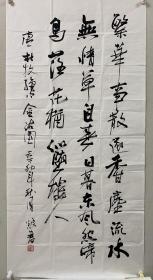 繁華事散逐香塵流水
無情草自春日暮東風怨啼
鳥落花猶似墜樓人
唐杜牧詩金谷園